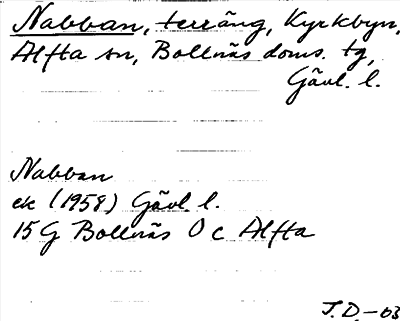 Nabban, terräng, Kyrkbyn,
Alfta sn, Bollnäs doms. tg,
Gävl. l.
Nabban
ek (1958) Gävl. l.
15G Bollnäs O c Alfta
J.D.-03